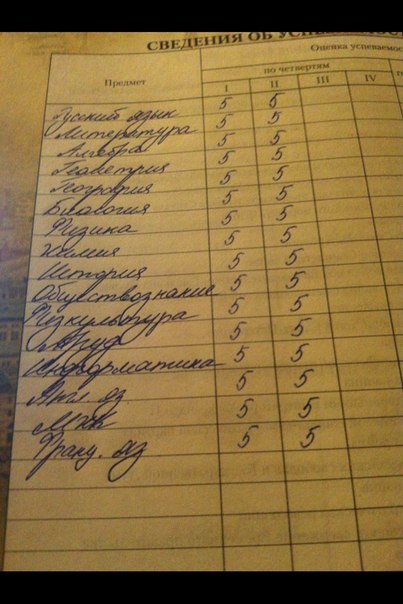 СВЕДЕНИЯ ОБ УСПЕВАЕМОС
Оценка успеваемос
по четвертям
Предмет I II III IV
Русский язык 5 5
Литература 5 5
Алгебра 5 5
Геометрия 5 5
География 5 5
Биология 5 5
Физика 5 5
Химия 5 5
История 5 5
Обществознание 5 5
Физкультура 5 5
Труд 5 5
Информатика 5 5
Англ. яз. 5 5
МХК 5 5
Франц. яз 5 5